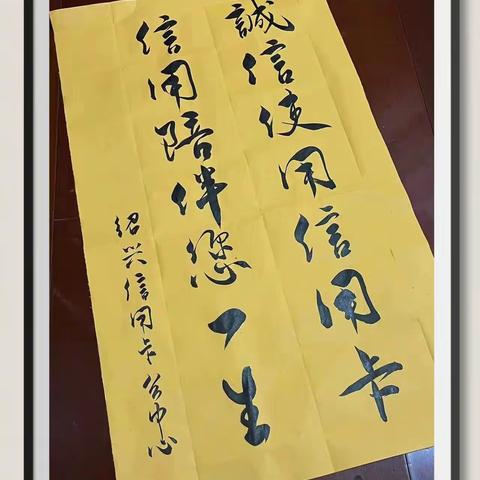 誠信使用信用卡
信用陪伴您一生
绍兴信用卡分中心